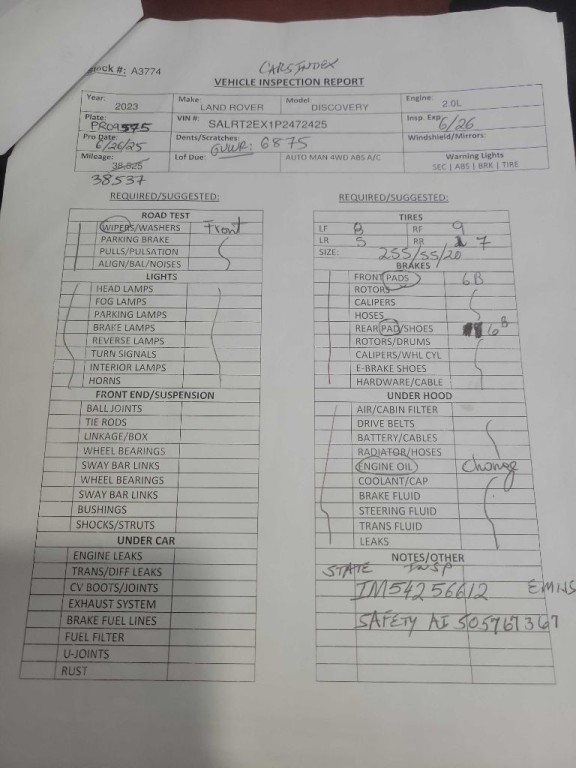 CARS INDEX
Stock #: A3774
VEHICLE INSPECTION REPORT
Year: 2023 Make: LAND ROVER Model DISCOVERY Engine: 2.0L
Plate: PRO9575 VIN #: SALRT2EX1P2472425 Insp. Exp: 6/26
Pro Date: 6/26/25 Dents/Scratches: GVWR: 6875 Windshield/Mirrors:
Mileage: 38,525 Lof Due: AUTO MAN 4WD ABS A/C Warning Lights
SEC | ABS | BRK | TIRE
38537
REQUIRED/SUGGESTED:
ROAD TEST
WIPERS/WASHERS Front
PARKING BRAKE
PULLS/PULSATION
ALIGN/BAL/NOISES
LIGHTS
HEAD LAMPS
FOG LAMPS
PARKING LAMPS
BRAKE LAMPS
REVERSE LAMPS
TURN SIGNALS
INTERIOR LAMPS
HORNS
FRONT END/SUSPENSION
BALL JOINTS
TIE RODS
LINKAGE/BOX
WHEEL BEARINGS
SWAY BAR LINKS
WHEEL BEARINGS
SWAY BAR LINKS
BUSHINGS
SHOCKS/STRUTS
UNDER CAR
ENGINE LEAKS
TRANS/DIFF LEAKS
CV BOOTS/JOINTS
EXHAUST SYSTEM
BRAKE FUEL LINES
FUEL FILTER
U-JOINTS
RUST
REQUIRED/SUGGESTED:
TIRES
LF 8 RF 9
LR 5 RR 7
SIZE: 255/55/20
BRAKES
FRONT PADS 6B
ROTORS
CALIPERS
HOSES
REAR PAD/SHOES 6B
ROTORS/DRUMS
CALIPERS/WHL CYL
E-BRAKE SHOES
HARDWARE/CABLE
UNDER HOOD
AIR/CABIN FILTER
DRIVE BELTS
BATTERY/CABLES
RADIATOR/HOSES
ENGINE OIL Change
COOLANT/CAP
BRAKE FLUID
STEERING FLUID
TRANS FLUID
LEAKS
NOTES/OTHER
STATE INSP
IM54256612
SAFETY AI 505767367